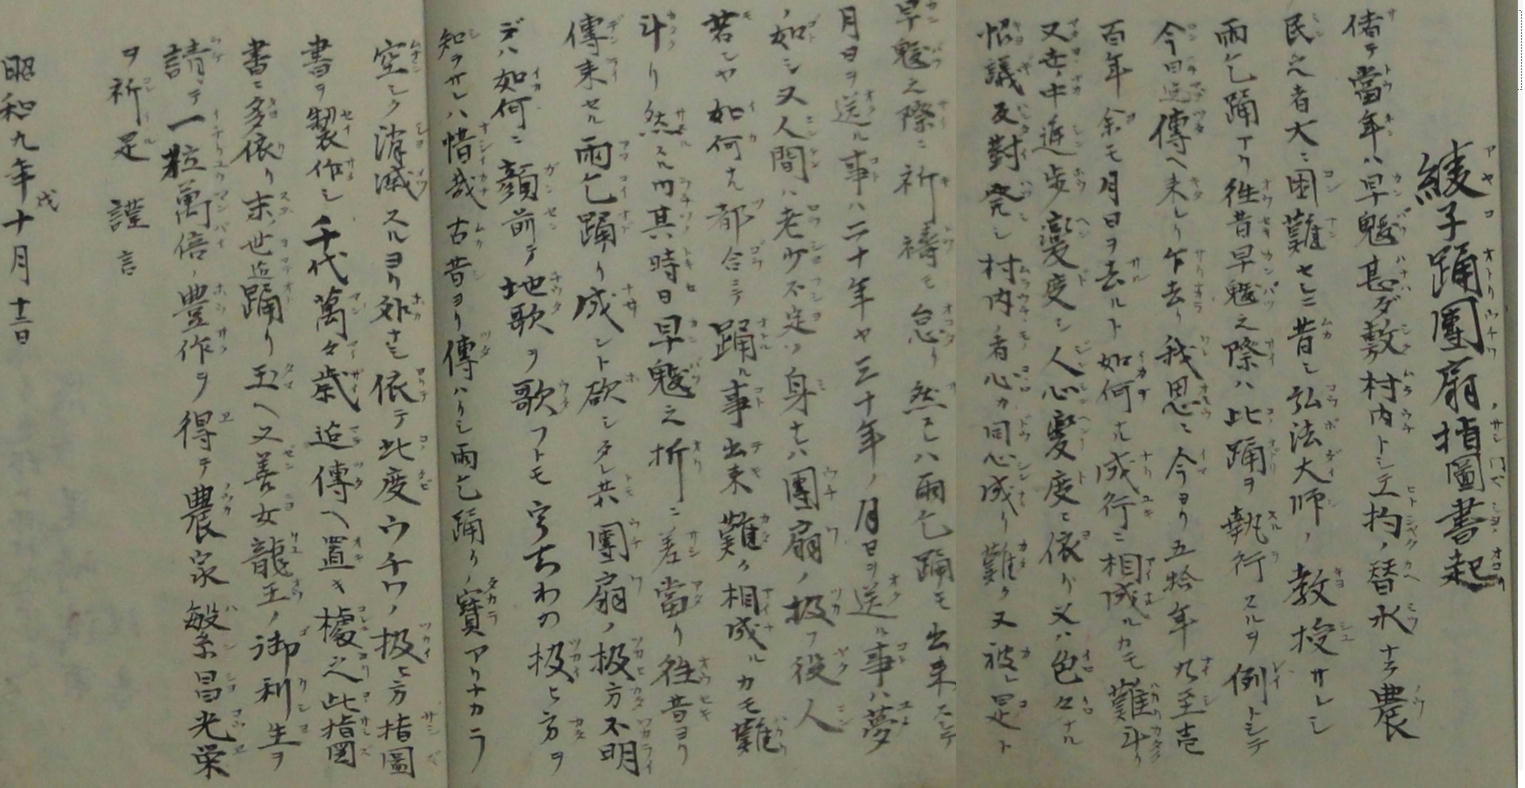 綾子踊團扇指圖書起
倩テ當年ハ旱魃甚ダ敷村内トシテ一杓ノ替水ナク農
民之者大ニ困難セシニ昔シ弘法大師ノ教授サレシ
雨乞踊アリ往昔旱魃之際ハ此踊ヲ執行スルヲ例トシテ
今日迄傳ヘ来レリ乍去リ我思ニ今ヨリ五拾年乃至壱
百年余モ月日ヲ去ルト如何ナル成行ニ相成ルカモ難斗リ
又世ノ中進歩變度シ人心變度ニ依リ又ハ色々ナル
協議反對発シ村内ノ者心カ同心成リ難ク又被レ是ト
旱魃之際ニ祈禱モ怠リ然レハ雨乞踊モ出来ズシテ
月日ヲ送ル事ハ二十年ヤ三十年ノ月日ヲ送ル事ハ夢
ノ如シ又人間ハ老少不定ノ身ナレハ團扇ノ扱フ役人
若シヤ如何ナル都合ニテ踊ル事出来難ク相成ルカモ難
斗リ然スル内其時日旱魃之折ニ差當リ往昔ヨリ
傳来セル雨乞踊リ成サント欲シタレ共團扇ノ扱方不明
デハ如何ニ顔前テ地歌ヲ歌フトモ宇ちわの扱ヒ方ヲ
知ラサレハ惜哉古昔ヨリ傳ハリシ雨乞踊リノ寳アナカラ
空シク消滅スルヨリ外ナシ依テ此度ウチワノ扱ヒ方指圖
書ヲ製作シ千代萬々歳迄傳ヘ置キ據之此指圖
書ニ多依リ末世迄踊リ玉ヘ又善女龍王ノ御利生ヲ
請テ一粒萬倍ノ豊作ヲ得テ農家繁昌光栄
ヲ祈ル是 謹言
昭和九年戌十月十二日